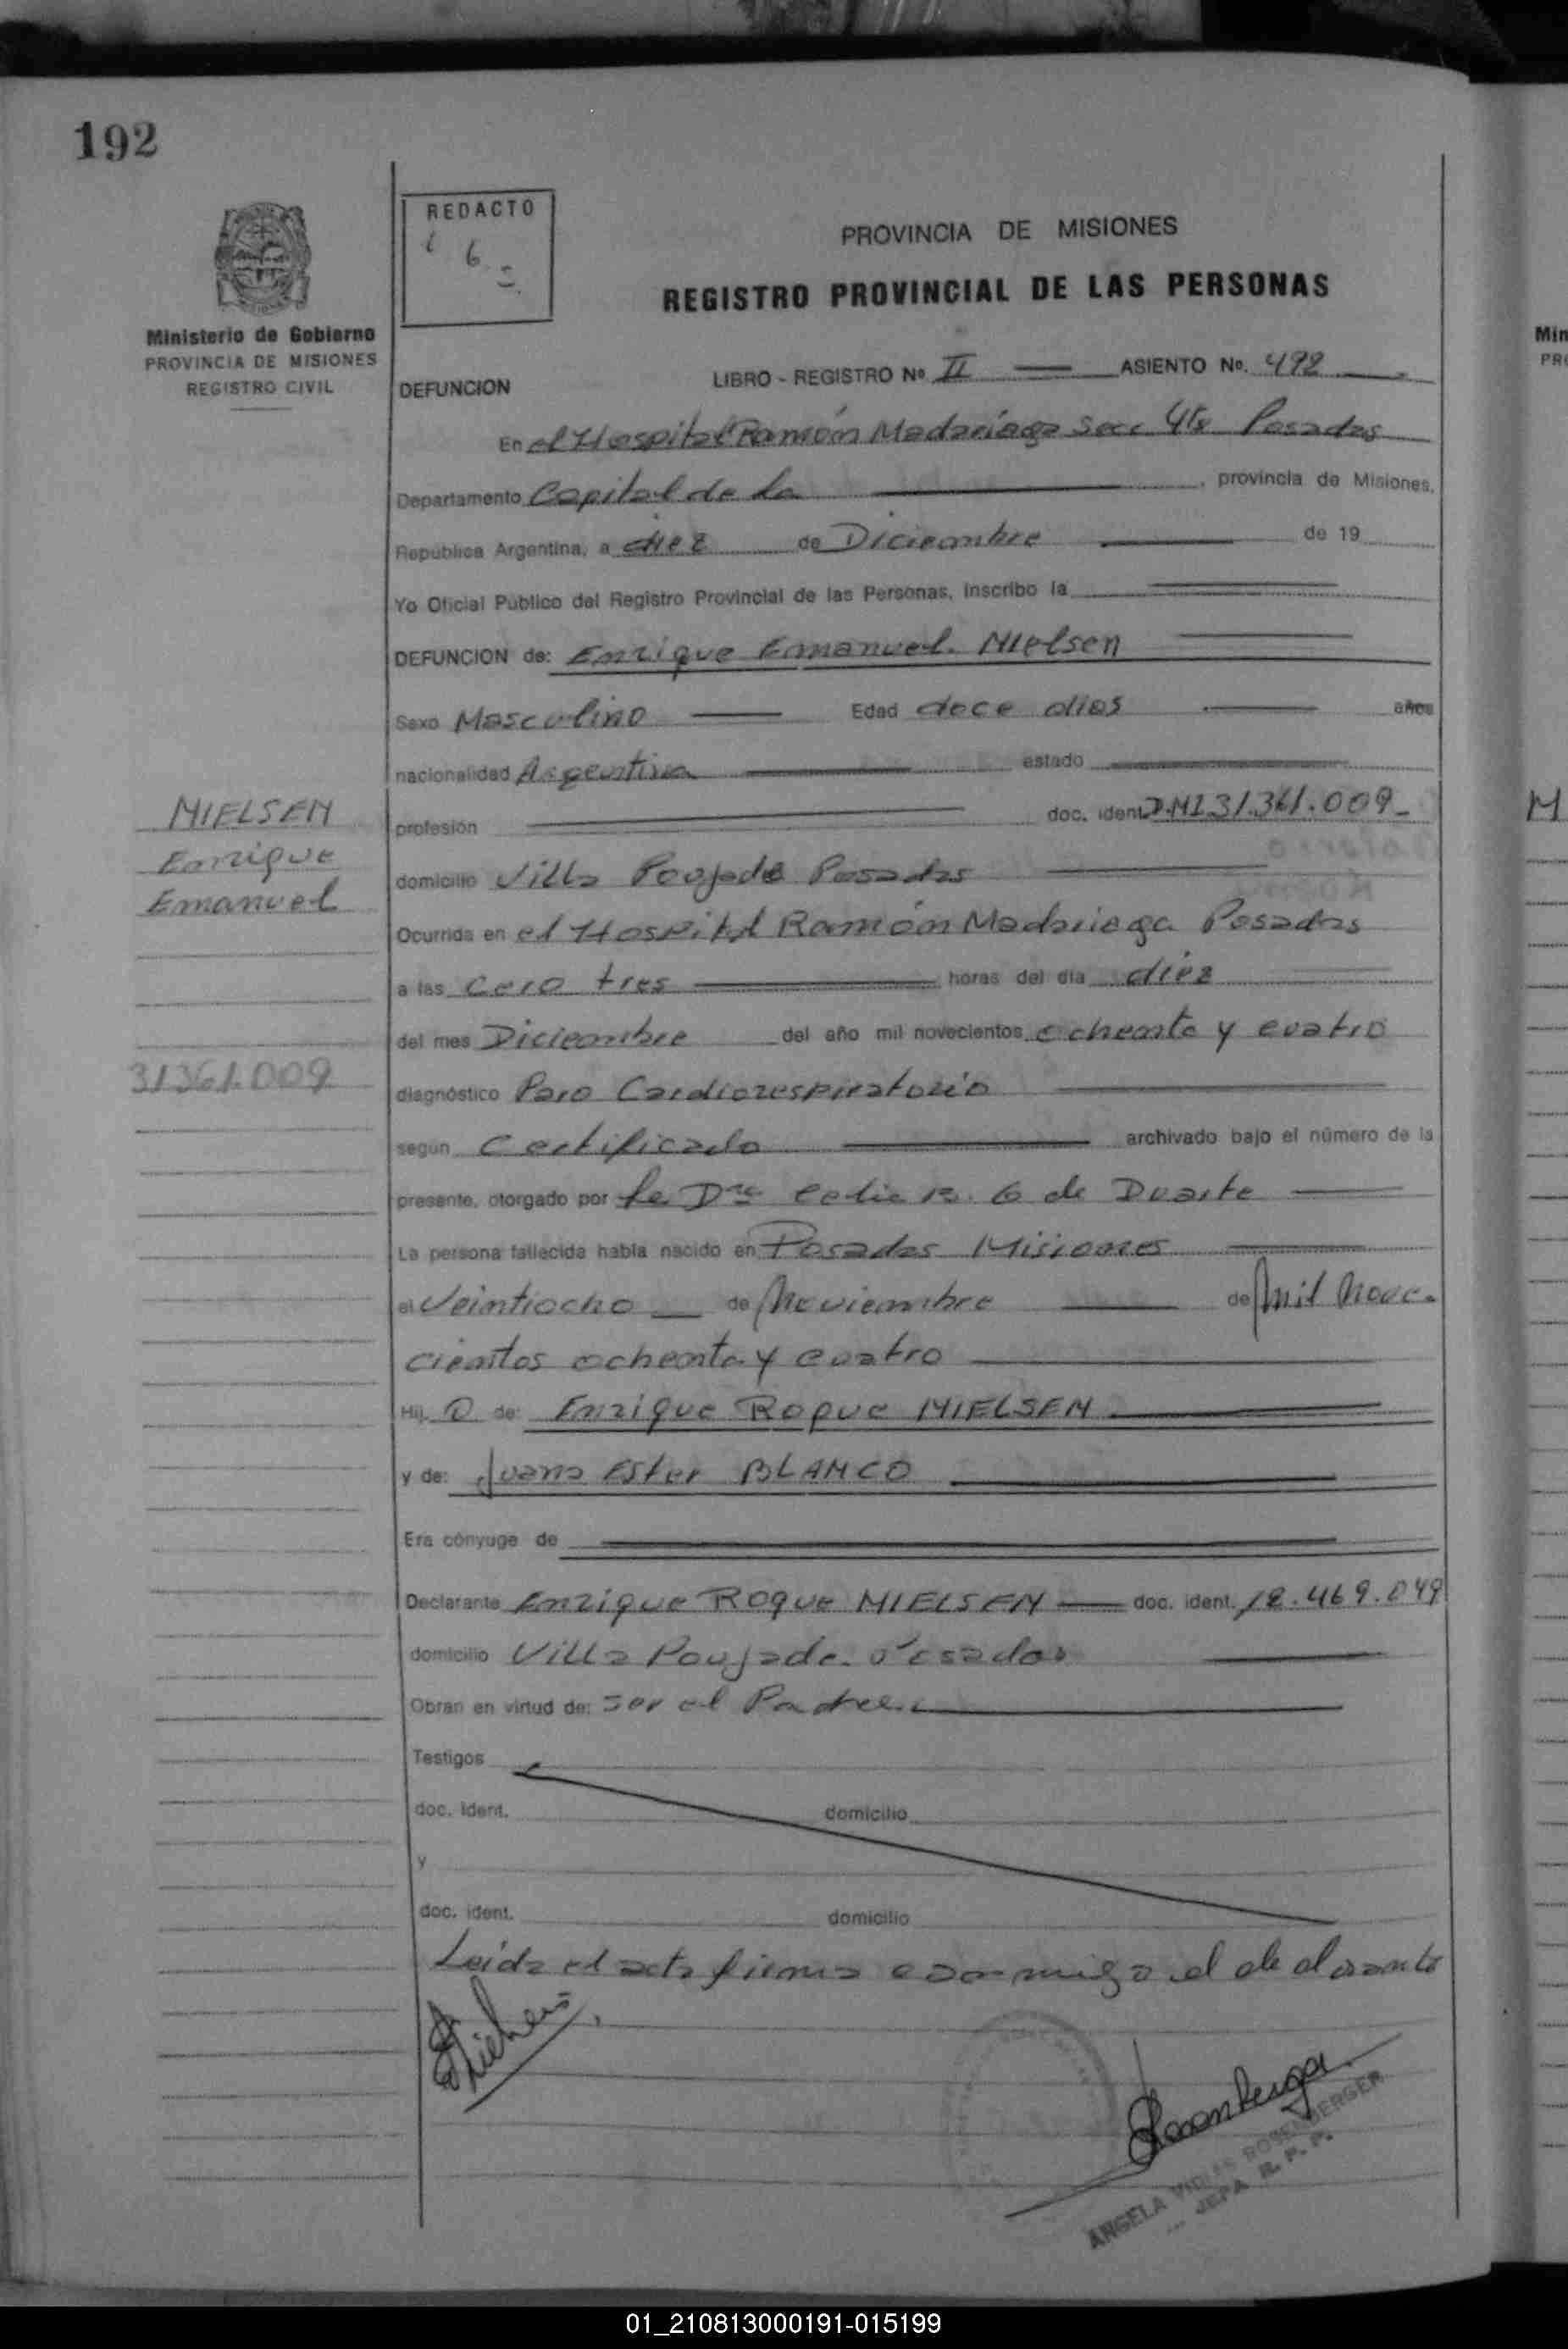 192
REDACTO
PROVINCIA DE MISIONES
REGISTRO PROVINCIAL DE LAS PERSONAS
Ministerio de Gobierno
PROVINCIA DE MISIONES
REGISTRO CIVIL
DEFUNCION
LIBRO - REGISTRO Nº II ASIENTO Nº. 492
En el Hospital Ramón Madariaga Secc 4ta Posadas
Departamento Capital de La , provincia de Misiones,
República Argentina, a diez de Diciembre de 19
Yo Oficial Público del Registro Provincial de las Personas, inscribo la
DEFUNCION de: Enrique Emanuel. Nielsen
Sexo Masculino Edad doce días años
nacionalidad Argentina estado
profesión doc. ident. D.N.I 31.361.009
domicilio Villa Poujade Posadas
Ocurrida en el Hospital Ramón Madariaga Posadas
a las cero tres horas del día diez
del mes Diciembre del año mil novecientos ochenta y cuatro
diagnóstico Paro Cardiorespiratorio
según certificado archivado bajo el número de la
presente, otorgado por la Dra B. G de Duarte
La persona fallecida había nacido en Posadas Misiones
el Veintiocho de Noviembre de mil nove-
cientos ochenta y cuatro
Hij o de: Enrique Roque NIELSEN
y de: Juana Ester BLANCO
Era cónyuge de
Declarante Enrique ROQUE NIELSEN doc. ident. 12.469.049
domicilio Villa Poujade. Posadas
Obran en virtud de: ser el Padre.
Testigos
doc. ident. domicilio
y
doc. ident. domicilio
Leida el acta firma conmigo el declarante
NIELSEN
Enrique
Emanuel
31361.009
ANGELA ROSENBERGER
JEFA R. P. P.
Min
PR
N
01_210813000191-015199